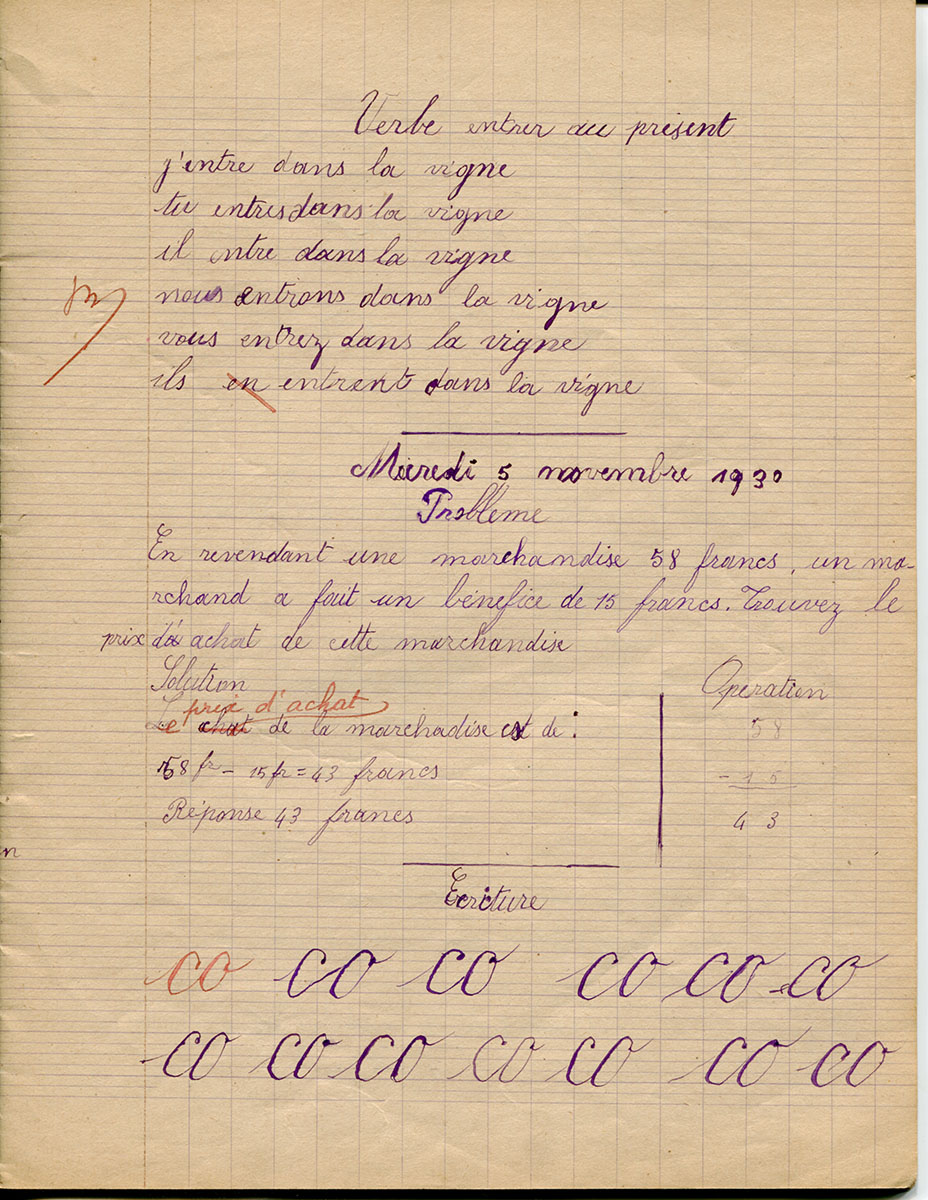 Verbe entrer au présent
j'entre dans la vigne
tu entres dans la vigne
il entre dans la vigne
nous entrons dans la vigne
vous entrez dans la vigne
ils en entrent dans la vigne
Mercredi 5 novembre 1930
Problème
En revendant une marchandise 58 francs, un ma-
rchand a fait un bénéfice de 15 francs. Trouvez le
prix d'achat de cette marchandise
Solution
prix d'achat
Le achat de la marchadise est de :
58 fr - 15 fr = 43 francs
Réponse 43 francs
Operation
58
- 15
43
n
Ecriture
co co co co co co
co co co co co co co